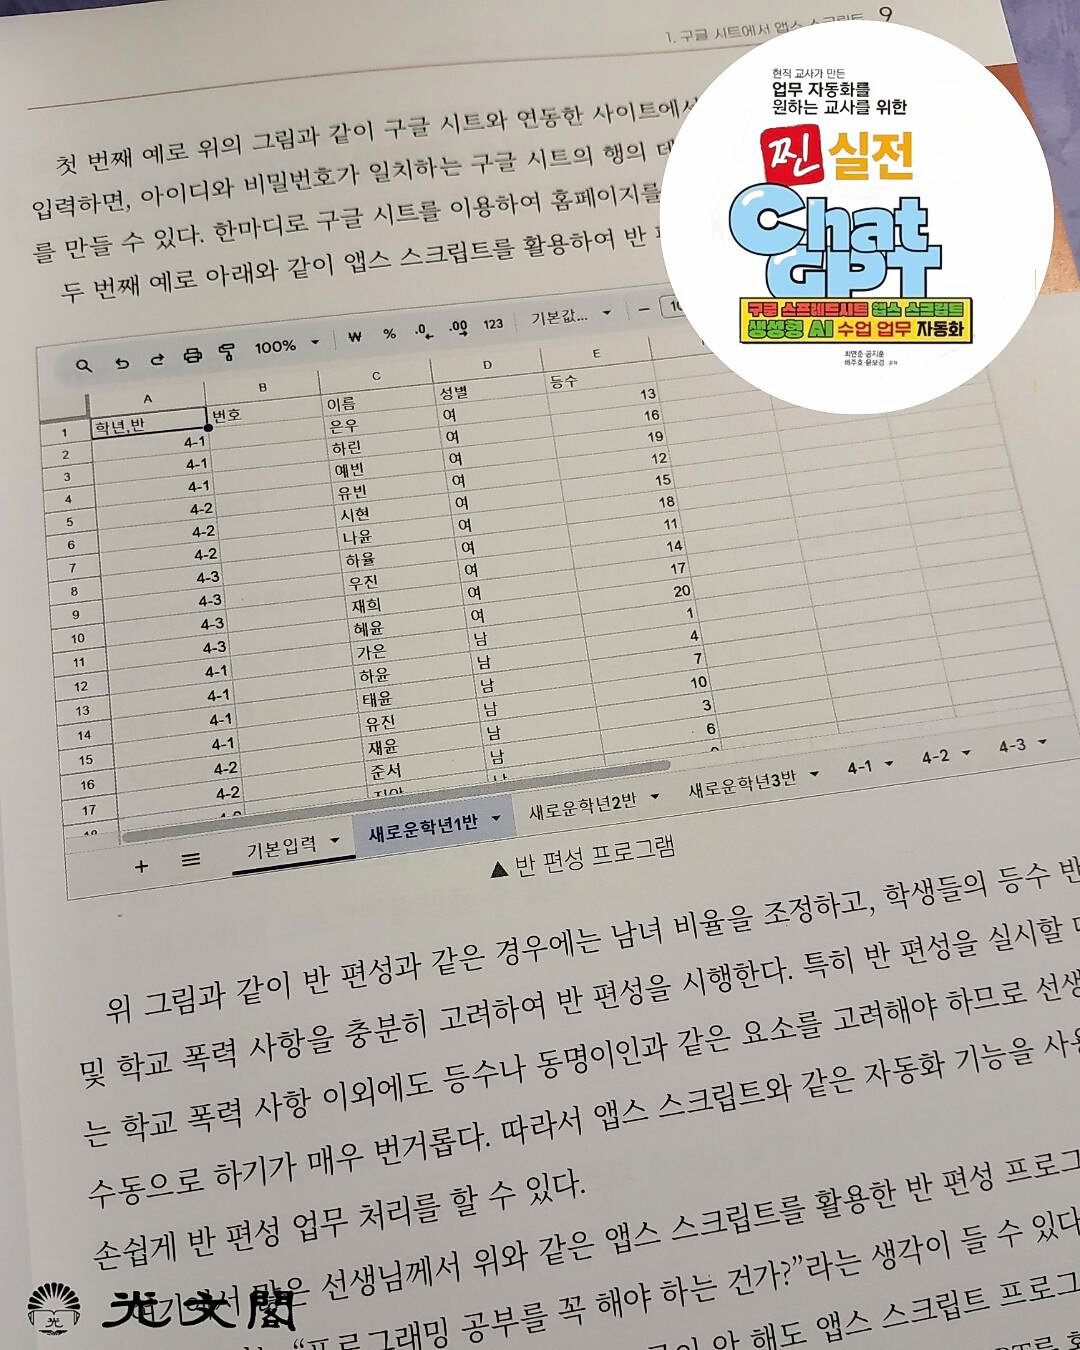 1. 구글 시트에서 앱스 스크립트 9
현직 교사가 만든
업무 자동화를
원하는 교사를 위한
찐 실전
Chat
GPT
구글 스프레드시트 앱스 스크립트
생성형 AI 수업 업무 자동화
최연준·공지훈
배주호·문보경 공저
첫 번째 예로 위의 그림과 같이 구글 시트와 연동한 사이트에서
입력하면, 아이디와 비밀번호가 일치하는 구글 시트의 행의
를 만들 수 있다. 한마디로 구글 시트를 이용하여 홈페이지를
두 번째 예로 아래와 같이 앱스 스크립트를 활용하여 반
100% ₩ % .0 .00 123 기본값...
A B C D E
1 학년,반 번호 이름 성별 등수
2 4-1 은우 여 13
3 4-1 하린 여 16
4 4-1 예빈 여 19
5 4-2 유빈 여 12
6 4-2 시현 여 15
7 4-2 나윤 여 18
8 4-3 하율 여 11
9 4-3 우진 여 14
10 4-3 재희 여 17
11 4-3 혜윤 여 20
12 4-1 가은 남 1
13 4-1 하윤 남 4
14 4-1 태윤 남 7
15 4-1 유진 남 10
16 4-2 재윤 남 3
17 4-2 준서 남 6
+ 기본입력 새로운학년1반 새로운학년2반 새로운학년3반 4-1 4-2 4-3
▲ 반 편성 프로그램
위 그림과 같이 반 편성과 같은 경우에는 남녀 비율을 조정하고, 학생들의 등수 반
및 학교 폭력 사항을 충분히 고려하여 반 편성을 시행한다. 특히 반 편성을 실시할
는 학교 폭력 사항 이외에도 등수나 동명이인과 같은 요소를 고려해야 하므로 선생
수동으로 하기가 매우 번거롭다. 따라서 앱스 스크립트와 같은 자동화 기능을
손쉽게 반 편성 업무 처리를 할 수 있다.
많은 선생님께서 위와 같은 앱스 스크립트를 활용한 반 편성 프로그
“프로그래밍 공부를 꼭 해야 하는 건가?”라는 생각이 들 수 있다
안 해도 앱스 스크립트 프로그
光文閣